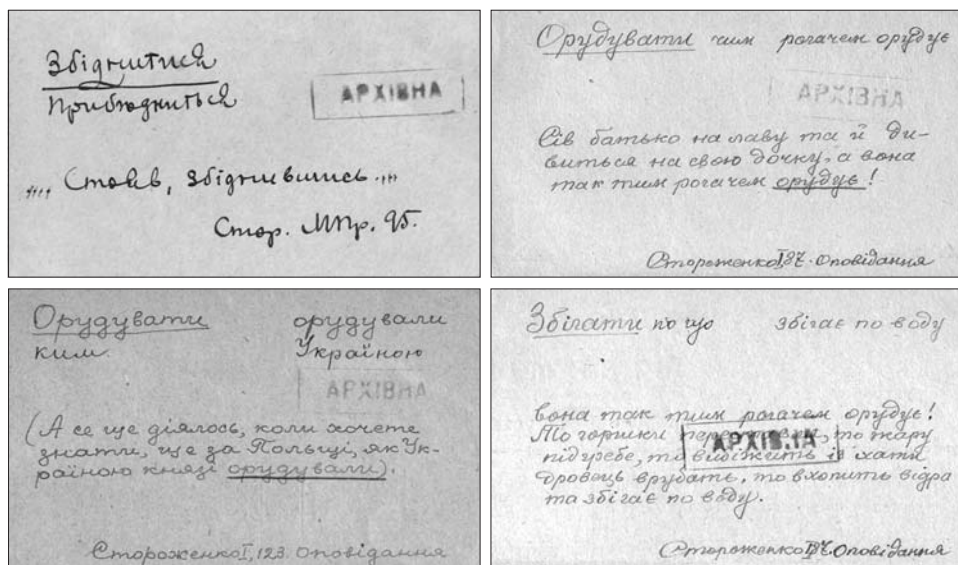 Збіднитися
Приблюдниться
АРХІВНА
„„ Стояв, збіднившись „„
Стор. МПр. 95.
Орудувати чим рогачем орудує
АРХІВНА
Сів батько на лаву та й ди-
виться на свою дочку, а вона
так тим рогачем орудує!
Стороженко I, 87. Оповідання
Орудувати орудували
ким. Україною
АРХІВНА
(А се ще діялось, коли хочете
знати, ще за Польщі, як Ук-
раїною князі орудували).
Стороженко I, 123. Оповідання
Збігати по що збігає по воду
вона так тим рогачем орудує!
То горшки, то жару
підгребе, то вибіжить із хати
дровець врубать, то вхопить відра
та збігає по воду.
АРХІВНА
Стороженко I, 87. Оповідання